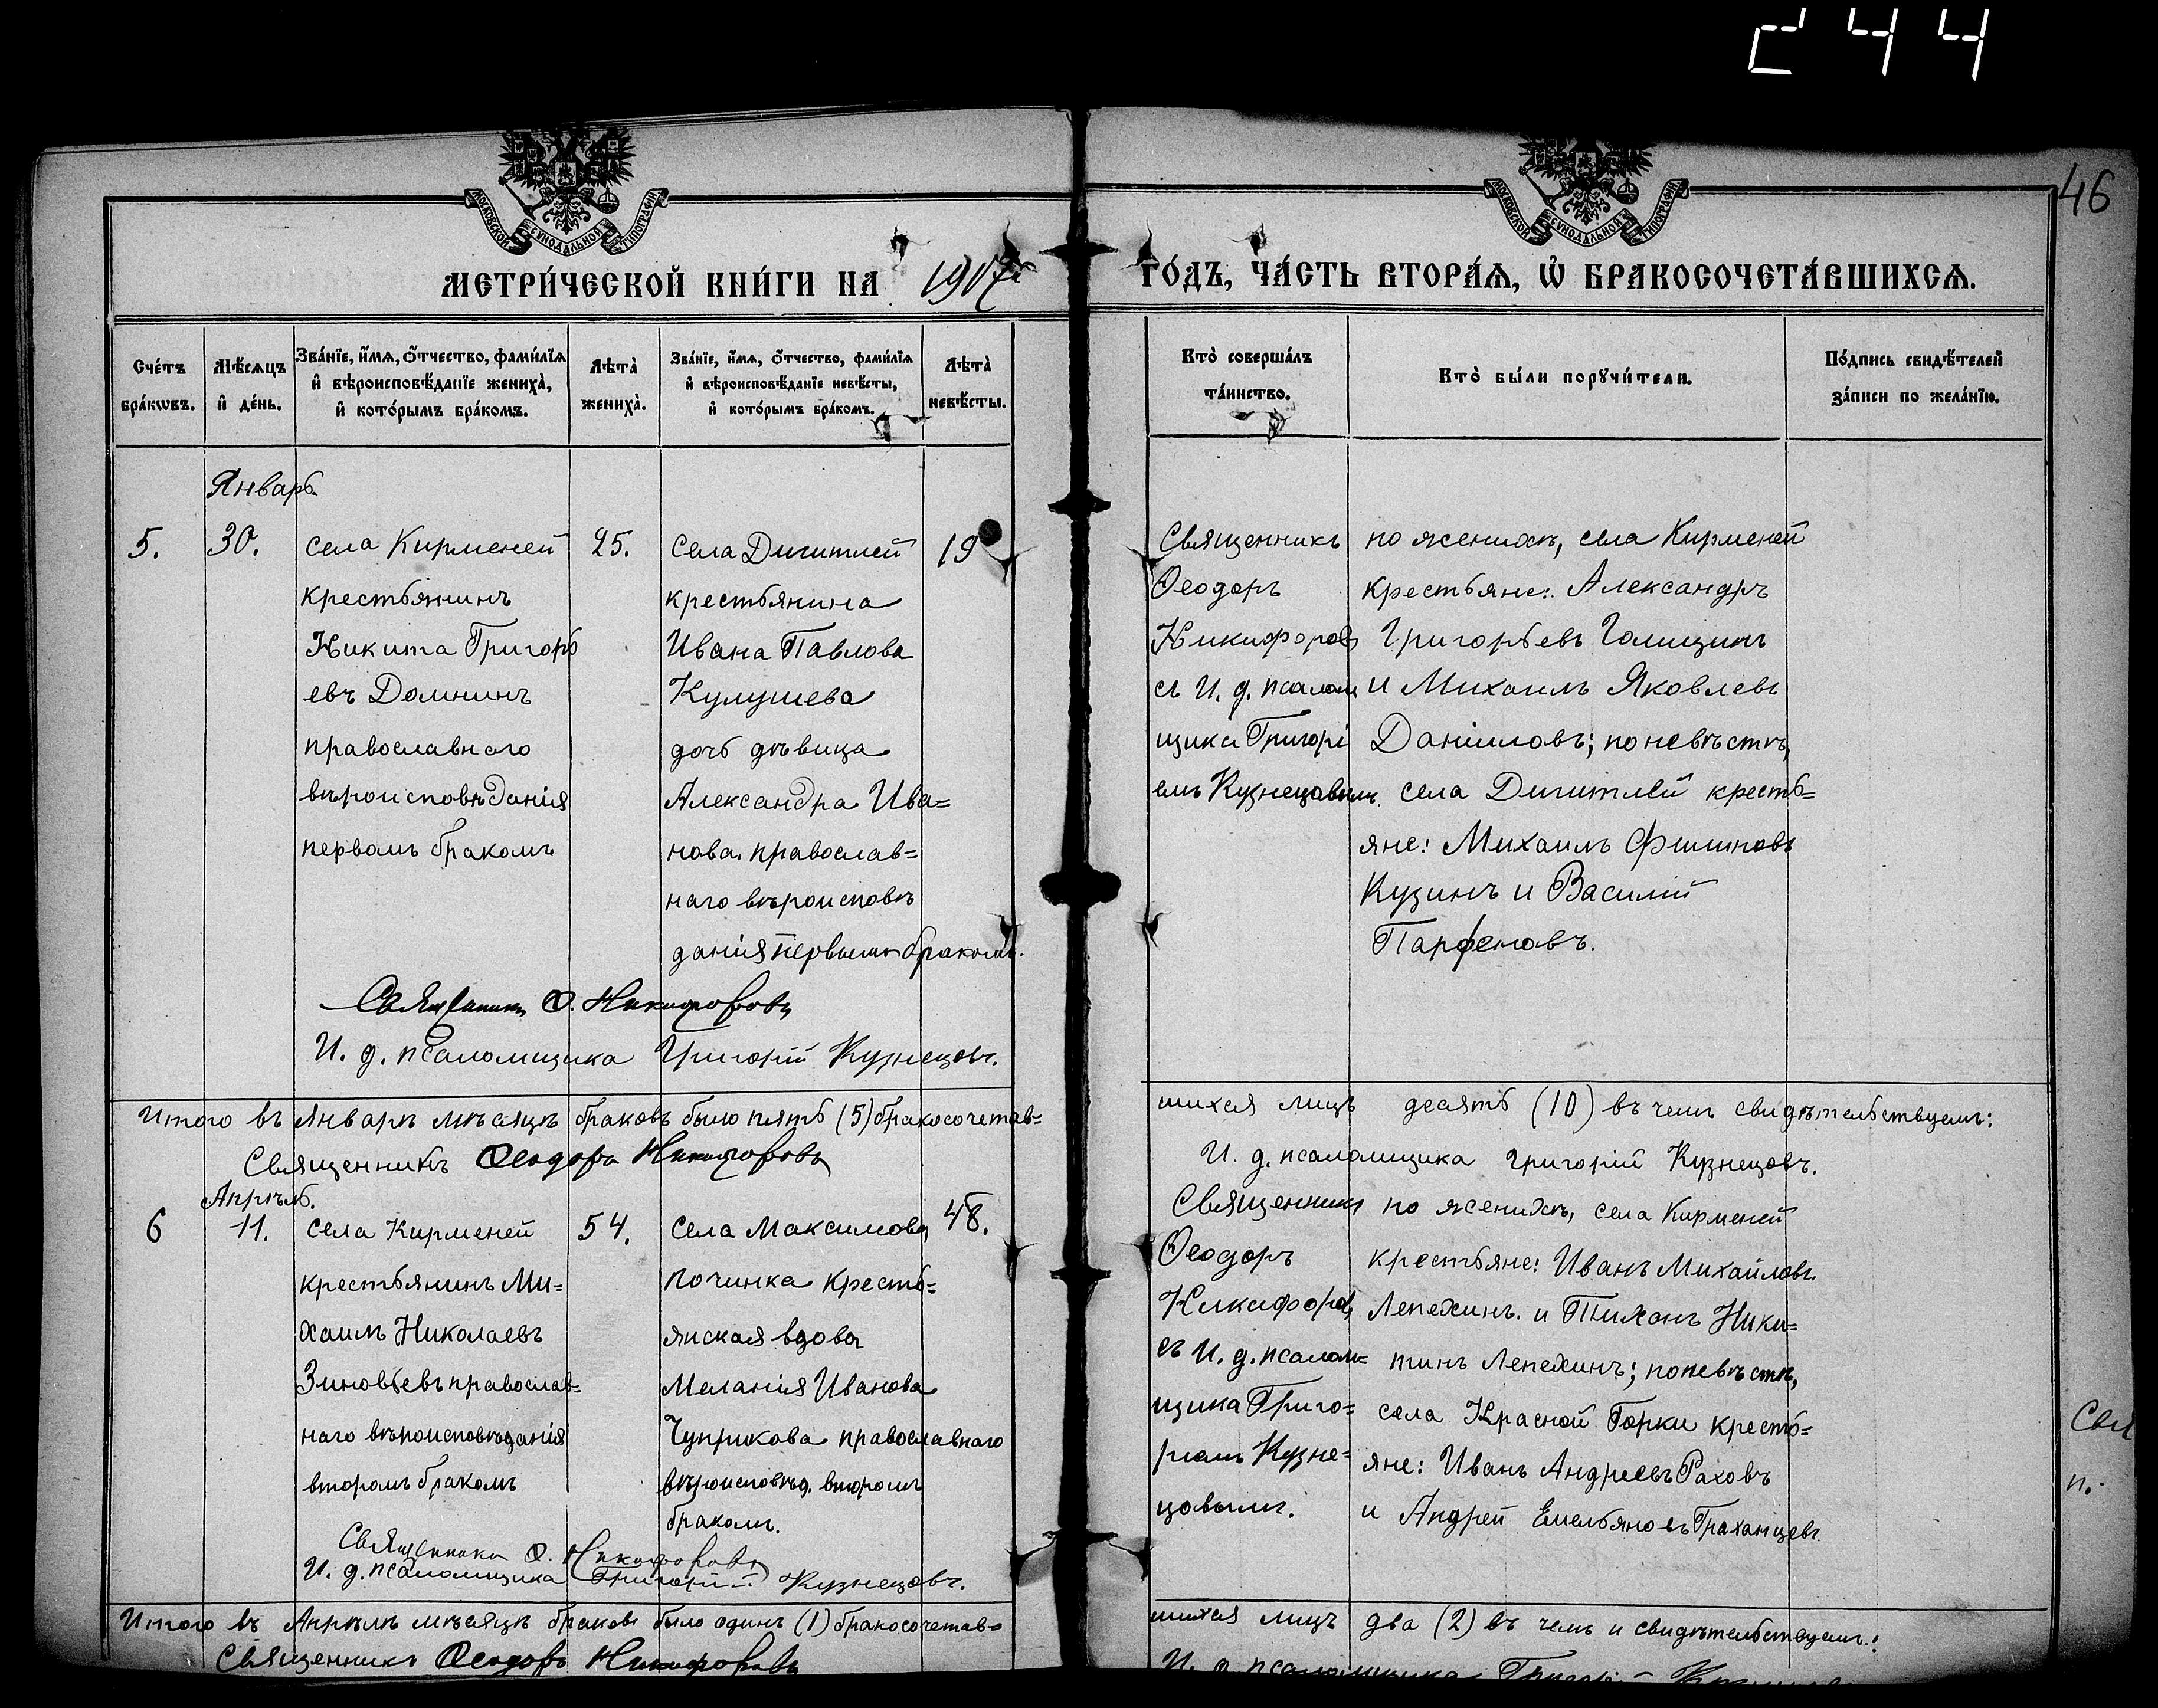 244
46
МОСКОВСКОЙ СУНОДАЛЬНОЙ ТИПОГРАФІИ
МОСКОВСКОЙ СУНОДАЛЬНОЙ ТИПОГРАФІИ
МЕТРИ́ЧЕСКОЙ КНИ́ГИ НА 1917 ГО́ДЪ, ЧА́СТЬ ВТОРА́Я, Ѡ҆ БРАКОСОЧЕТА́ВШИХСЯ.
Сче́тъ бра́кѡвъ.
Мѣ́сяцъ и҆ де́нь.
Зва́нїе, и҆́мя, ѻ҆́тчество, фами́лїя и҆ вѣроисповѣ́данїе жениха̀, и҆ кото́рымъ бра́комъ.
Лѣта̀ жениха̀.
Зва́нїе, и҆́мя, ѻ҆́тчество, фами́лїя и҆ вѣроисповѣ́данїе невѣ́сты, и҆ кото́рымъ бра́комъ.
Лѣта̀ невѣ́сты.
Кто̀ соверша́лъ та́инство.
Кто̀ бы́ли порꙋчи́тели.
По́дпись свидѣ́телей за́писи по жела́нїю.
Январь.
5.
30.
села Кирменей
крестьянинъ
Никита Григорь
евъ Домнинъ
православнаго
вѣроисповѣданія
первомъ бракомъ
25.
села Дигитлей
крестьянина
Ивана Павлова
Кулушева
дочь дѣвица
Александра Ива=
нова, православ=
наго вѣроисповѣ
данія первымъ бракомъ.
19
Священникъ
Ѳеодоръ
Никифоровъ
съ И. д. псалом
щика Григорі
емъ Кузнецовымъ.
по женихѣ, села Кирменей
крестьяне: Александръ
Григорьевъ Голицинъ
и Михаилъ Яковлевъ
Даниловъ; по невѣстѣ,
села Дигитлей кресть=
яне: Михаилъ Филиповъ
Кузинъ и Василій
Парфеновъ.
Священникъ Ѳ. Никифоровъ
И. д. псаломщика Григорій Кузнецовъ.
Итого въ Январѣ мѣсяцѣ браковъ было пять (5) бракосочетав=
шихся лицъ десять (10) въ чемъ свидѣтельствуемъ:
Священникъ Ѳеодоръ Никифоровъ
И. д. псаломщика Григорій Кузнецовъ.
Апрѣль.
6
11.
села Кирменей
крестьянинъ Ми=
хаилъ Николаевъ
Зиновьевъ православ=
наго вѣроисповѣданія
вторымъ бракомъ
54.
села Максимова
починка кресть=
янская вдова
Меланія Иванова
Чуприкова православнаго
вѣроисповѣд. вторымъ
бракомъ.
48.
Священникъ
Ѳеодоръ
Никифоровъ
съ И. д. псалом=
щика Григо=
ріемъ Кузне=
цовымъ.
по женихѣ, села Кирменей
крестьяне: Иванъ Михайловъ
Лепехинъ и Тихонъ Ники=
тинъ Лепехинъ; по невѣстѣ,
села Красной Горки кресть=
яне: Иванъ Андреевъ Раховъ
и Андрей Емельяновъ Граханцевъ.
Священникъ Ѳ. Никифоровъ
И. д. псаломщика Григорій Кузнецовъ.
Итого въ Апрѣлѣ мѣсяцѣ браковъ было одинъ (1) бракосочетав=
шихся лицъ два (2) въ чемъ и свидѣтельствуемъ:
Священникъ Ѳеодоръ Никифоровъ
И. д. псаломщика Григорій